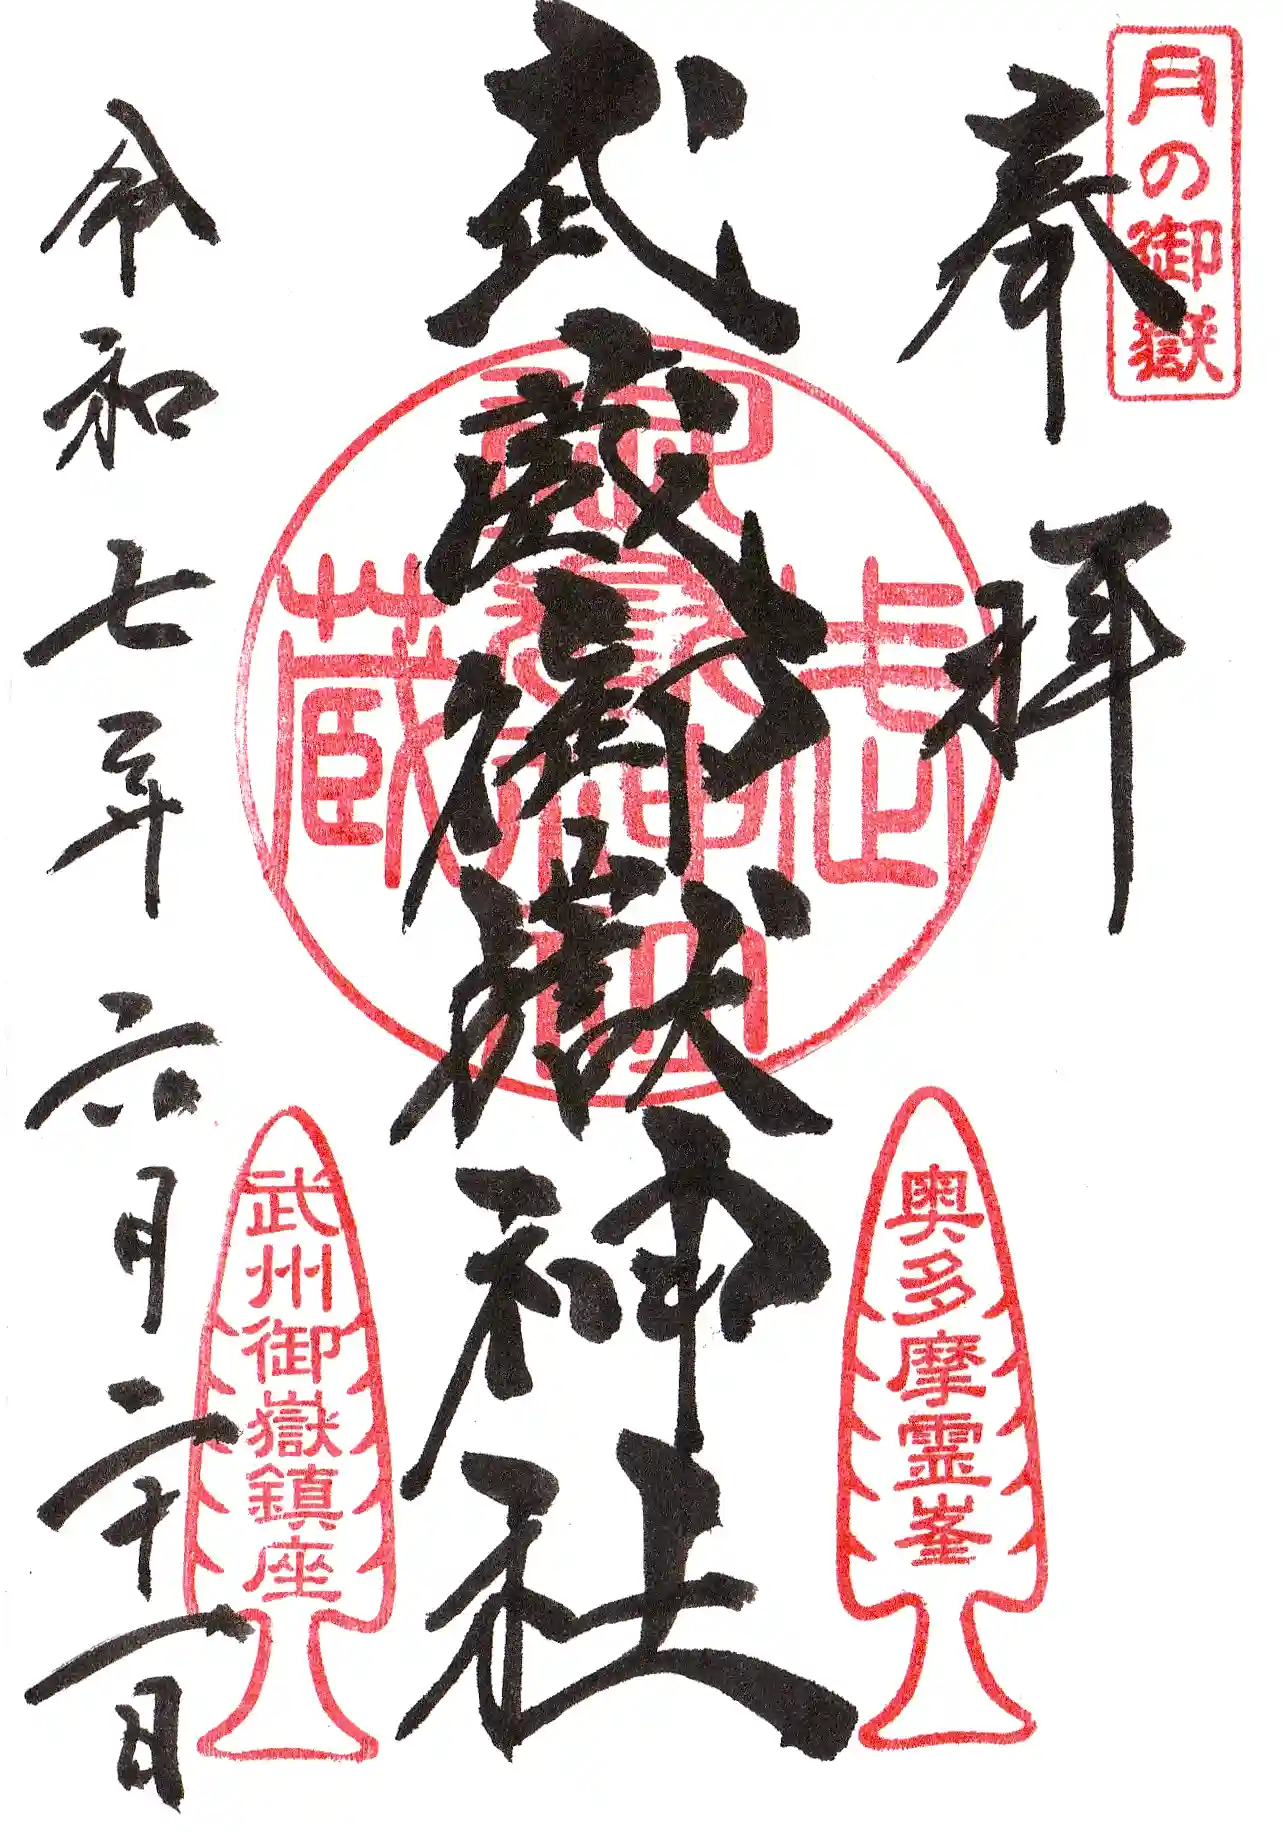 月の御嶽
奉拝
奥多摩霊峯
武蔵御嶽神社
武州御嶽鎮座
令和七年六月二十一日